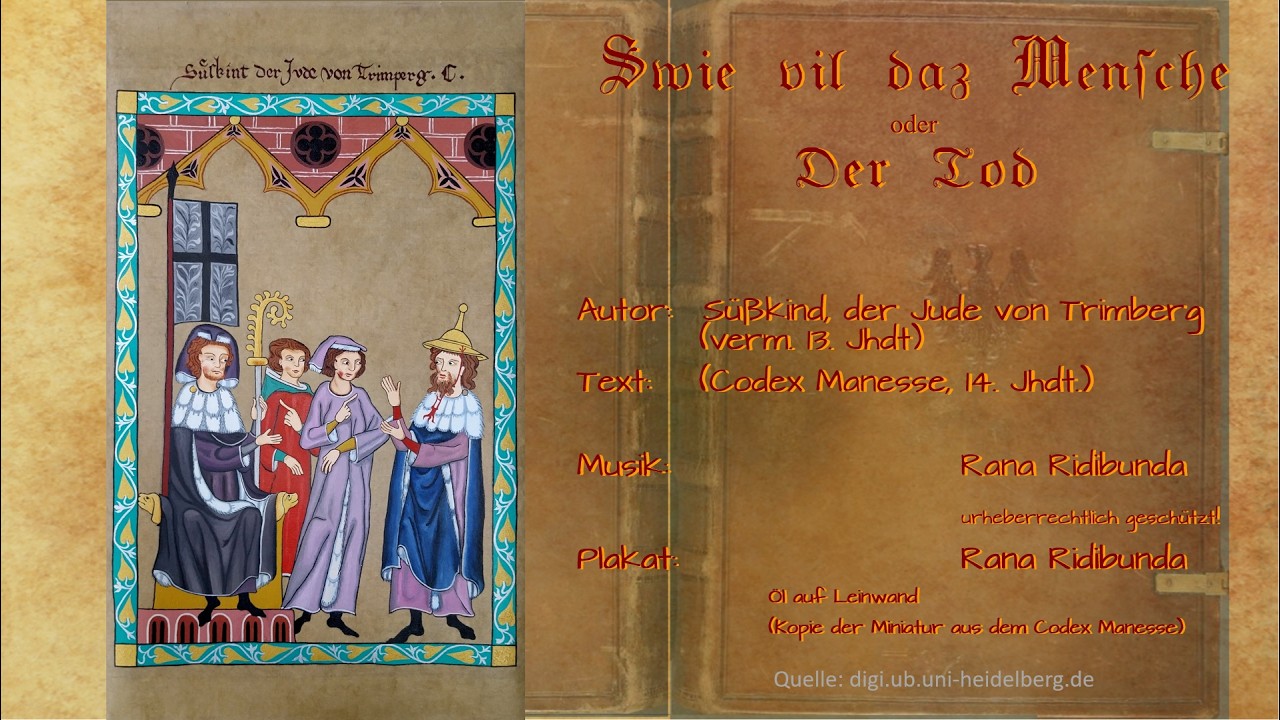 Süskint der Jvde von Trimperg. C.
Swie vil daz Menſche
oder
Der Tod
Autor: Süßkind, der Jude von Trimberg
(verm. 13. Jhdt)
Text: (Codex Manesse, 14. Jhdt.)
Musik: Rana Ridibunda
urheberrechtlich geschützt!
Plakat: Rana Ridibunda
Öl auf Leinwand
(Kopie der Miniatur aus dem Codex Manesse)
Quelle: digi.ub.uni-heidelberg.de